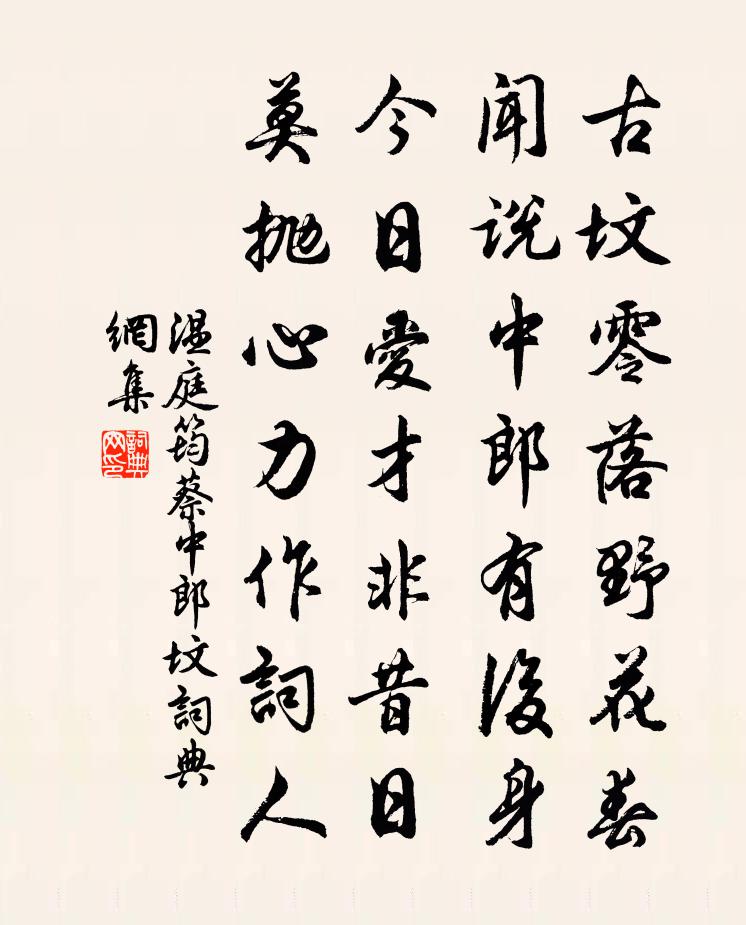 古坟零落野花春
闻说中郎有後身
今日愛才非昔日
莫抛心力作詞人
温庭筠蔡中郎坟詞典
網集
詞典
网印